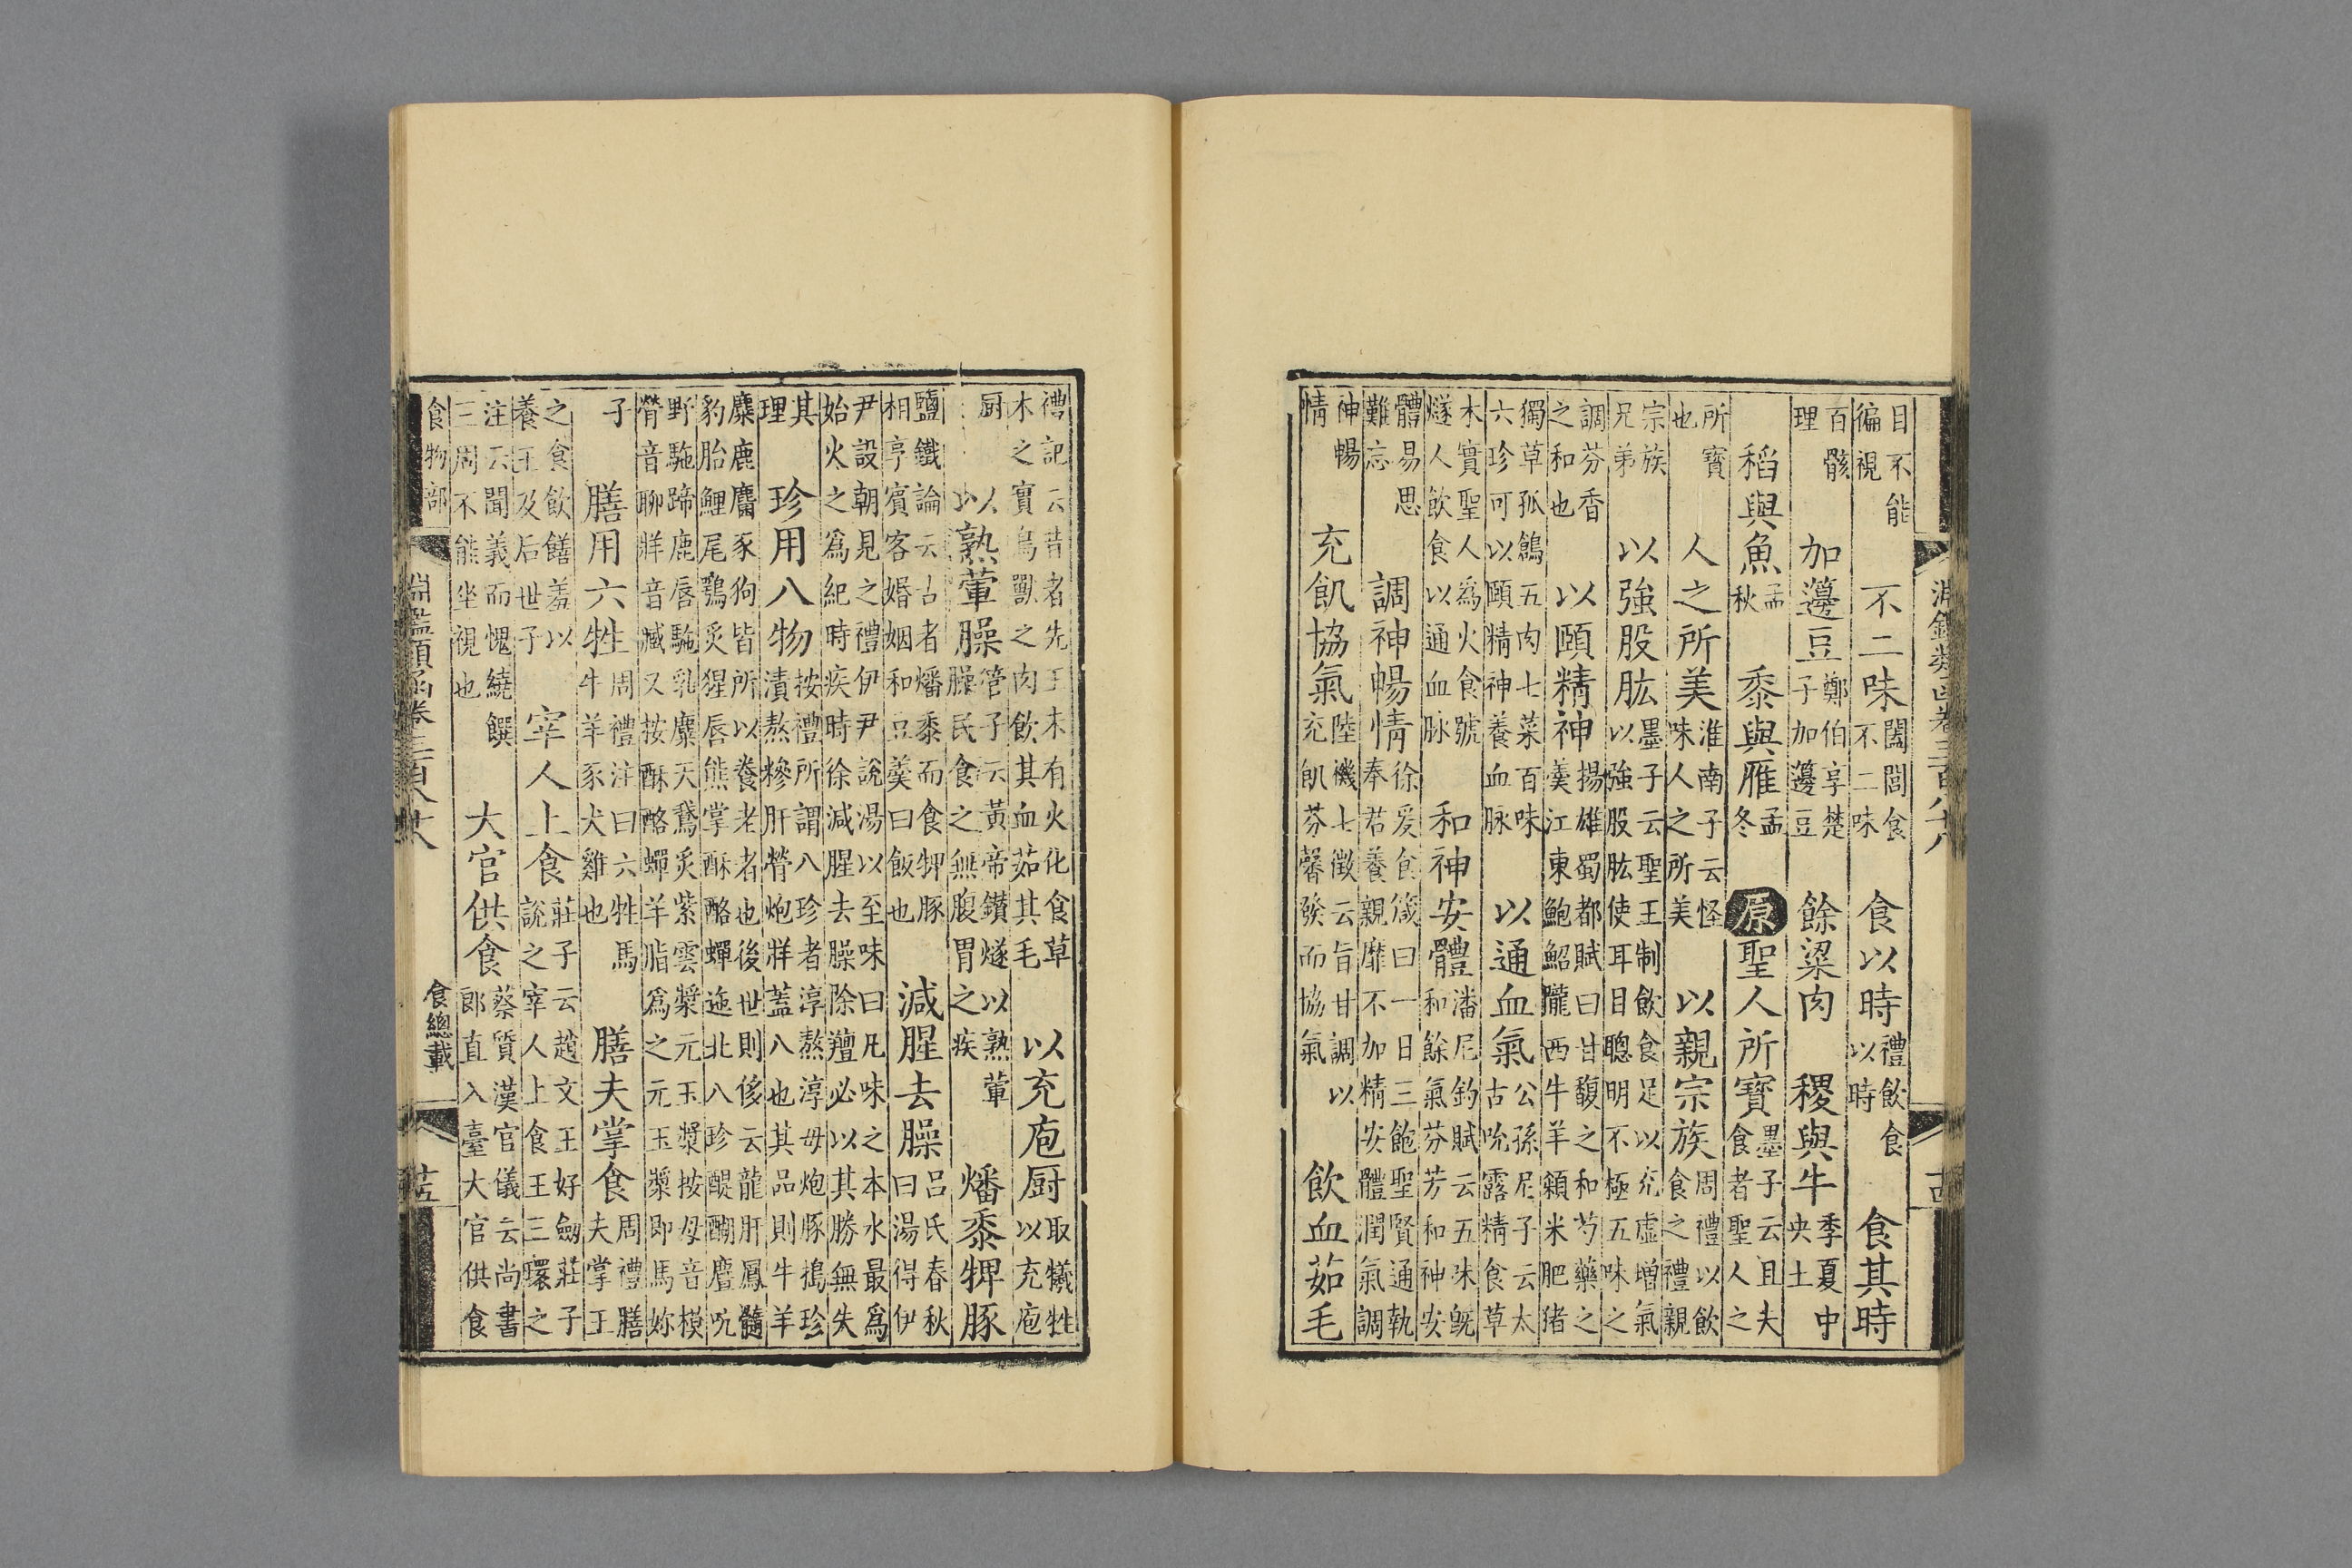 淵鑑類函卷三百八十八
目不能徧視 不二味 闔閭食不二味 食以時 禮飲食以時 食其時
百骸理 加邊豆 鄭伯享楚子加邊豆 餘粱肉 稷與牛 季夏中央土
稻與魚 孟秋 黍與雁 孟冬 原 聖人所寶 墨子云且夫食者聖人之
所寶也 人之所美 淮南子云怪味人之所美 以親宗族 周禮以飲食之禮親
宗族兄弟 以強股肱 墨子云聖王制飲食足以充虛增氣以強股肱使耳目聰明不極五味之
調芬香之和也 以頤精神 揚雄蜀都賦曰甘馥之和芍藥之羹江東鮑鮊隴西牛羊米肥猪
獨草孤鶬五肉七菜百味六珍可以頤精神養血脉 以通血氣 公孫尼子云太古吮露精食草
木實聖人爲火食號燧人飲食以通血脉 和神安體 潘尼釣賦云五味既和餘氣芬芳和神安
體易思難忘 調神暢情 徐爰食箴曰一日三飽聖賢通執奉君養親靡不加精安體潤氣調
神暢情 充飢協氣 陸機七徴云旨甘調以充飢芬馨發而協氣 飲血茹毛
禮記云昔者先王未有火化食草木之實鳥獸之肉飲其血茹其毛 以充庖厨 取犧牲以充庖
厨 以熟葷臊 管子云黃帝鑽燧以熟葷臊民食之無腹胃之疾 燔黍捭豚
鹽鐵論云古者燔黍而食捭豚相享賓客婚姻和豆羹曰飯也 減腥去臊 呂氏春秋曰湯得伊
尹設朝見之禮伊尹說湯以至味曰凡味之本水最爲始火之爲紀時疾時徐減腥去臊除羶必以其勝無失
其理 珍用八物 按禮所謂八珍者淳熬淳毋炮豚擣珍漬熬糝肝膋炮牂蓋八也其品則牛羊
麋鹿麕豕狗皆所以養老者也後世則侈云龍肝鳳髓豹胎鯉尾鶚炙猩唇熊掌酥酪蟬迤北八珍醍醐麆吭
野駞蹄鹿唇駞乳麋天鵝炙紫雲漿元玉漿按毋音模膋音聊牂音臧又按酥酪蟬羊脂爲之元玉漿即馬妳
子 膳用六牲 周禮注曰六牲馬牛羊豕犬雞也 膳夫掌食 周禮膳夫掌王
之食飲饍羞以養王及后世子 宰人上食 莊子云趙文王好劔莊子說之宰人上食王三環之
注云聞義而愧繞饌三周不能坐視也 大官供食 蔡質漢官儀云尚書郎直入臺大官供食
食物部 淵鑑類函卷三百八十八 食總載